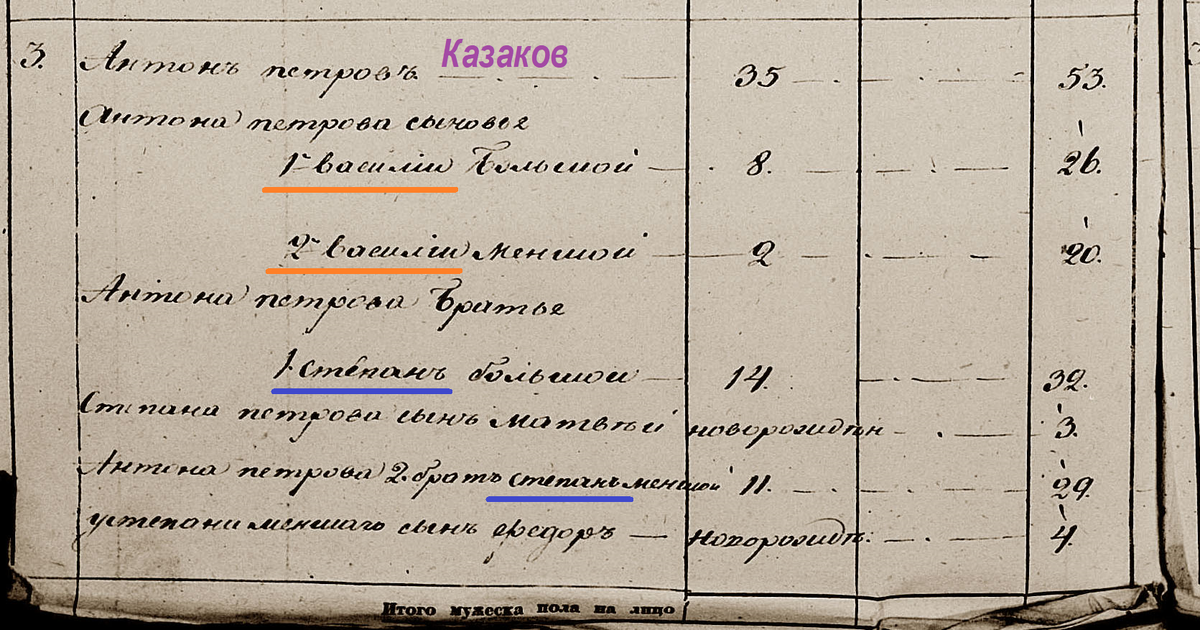 3. Антонъ петровъ Казаков 35 53.
Антона петрова сыновье
1й василiи Большой 8. 26.
2й василiи меншой 2 20.
Антона петрова Братье
1 Степанъ большои 14 32.
Степана петрова сынъ матвѣй новорожденъ 3.
Антона петрова 2. братъ степанъ меншой 11. 29.
устепани меншаго сынъ Федоръ новорожде: 4.
Итого мужеска пола на лицо